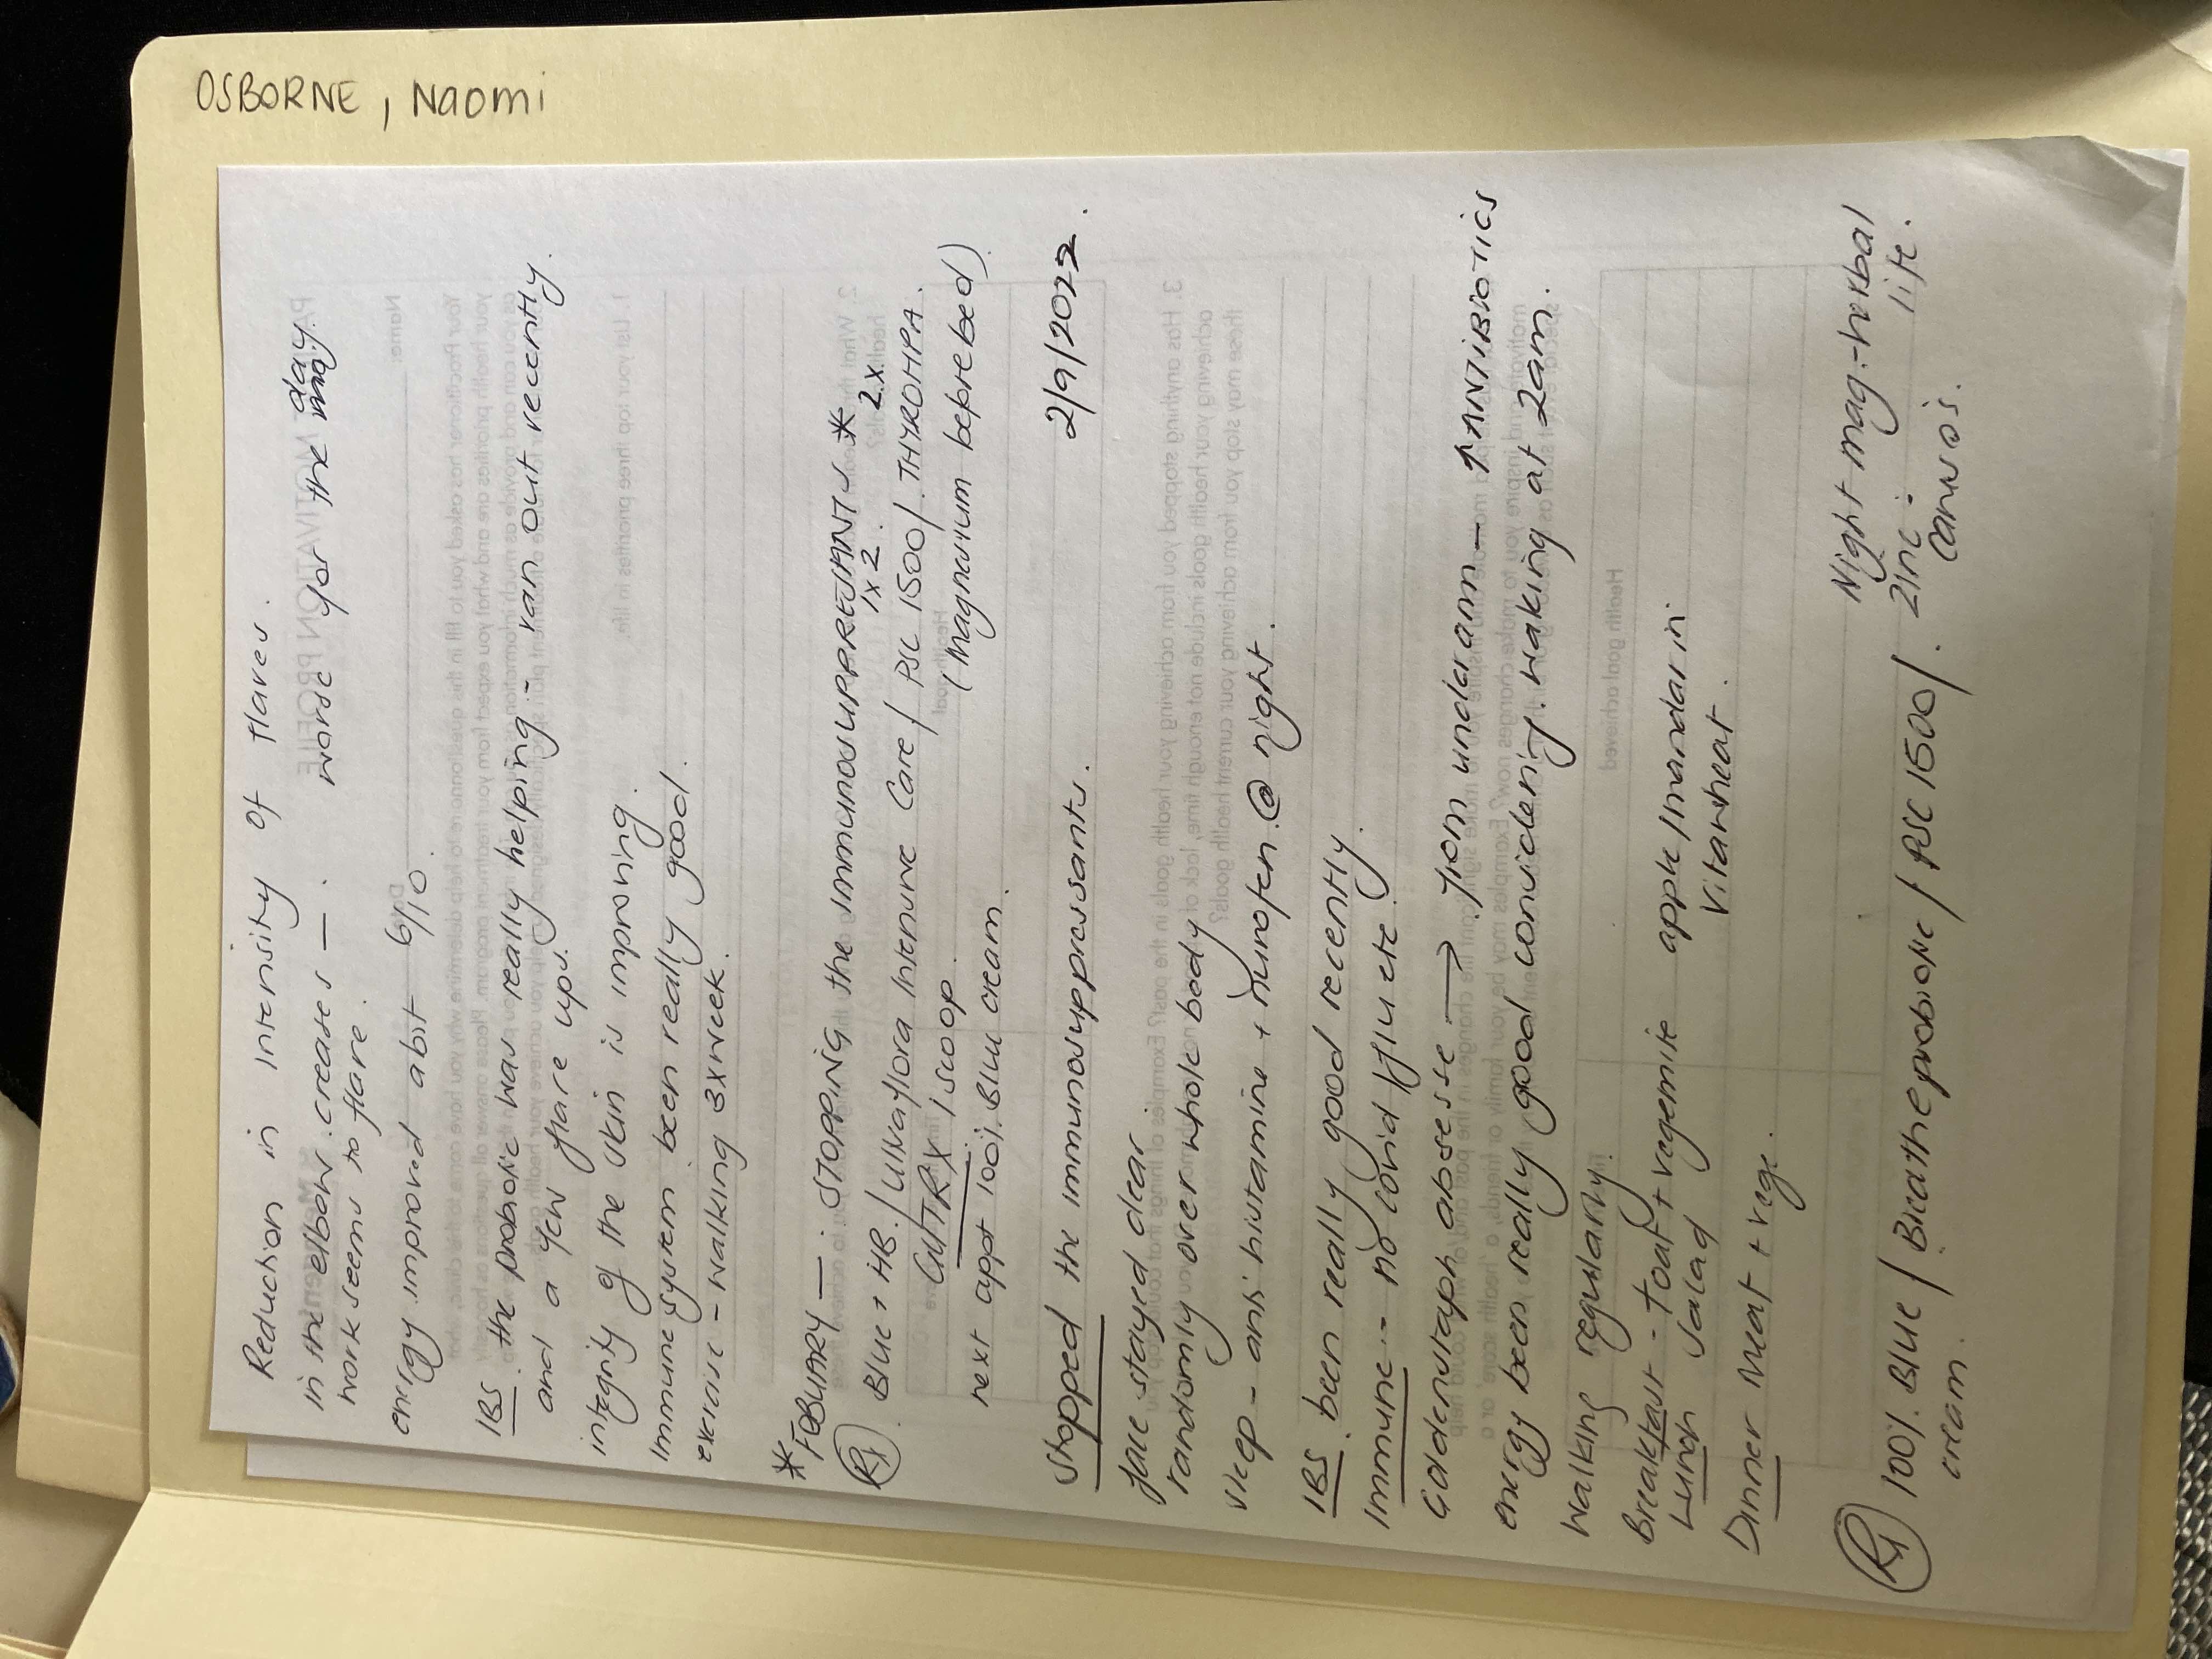 OSBORNE, Naomi
Reduction in intensity of flares.
in the elbow creases — . worse for the day.
work seems to flare.
energy improved abit 6/10.
IBS. the probiotic was really helping - ran out recently.
and a few flare ups.
integrity of the skin is improving.
immune system been really good.
exercise - walking 3xweek.
* FEBUARY — . STOPPING the IMMUNOSUPPRESSANTS *
1x2. 2.x.
Rx. Blue + HB. / Ultraflora Intensive Care / PSC 1500 / THYROHPA.
GUTRX 1 scoop. (Magnesium beforebed).
next appt 100% Blue cream.
Stopped the immunosuppressants. 2/9/2022.
face stayed clear
randomly over whole body
sleep - anti histamine + nurofen @ night.
IBS. been really good recently.
Immune - no covid / flu etc.
Goldenstaph absesse → from underarm - ↑ ANTIBIOTICS
energy been really good considering. waking at 2am.
walking regularly.
Breakfast - toast + vegemite apple/mandarin
Lunch salad Vitawheat.
Dinner Meat + vege.
Night mag - herbal life.
Rx 100% Blue / Breathe probiotic / PSC 1500 /. zinc -
cream.